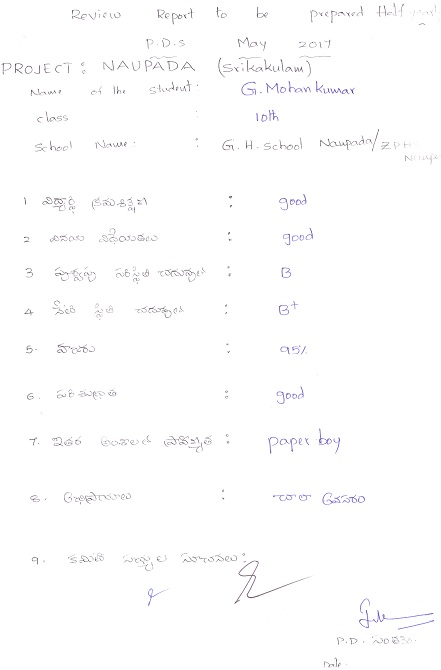 Review Report to be prepared Half
P.D.S May 2017
PROJECT: NAUPADA (Srikakulam)
Name of the Student: G. Mohan kumar
class : 10th
School Name: : G. H. School Naupada/ ZPH
1 విద్యార్థి క్రమశిక్షణ : good
2 వినయ విధేయతలు : good
3 పూర్వపు పరిస్థితి చదువులో : B
4 నేటి స్థితి చదువులో : B+
5. హాజరు : 95%
6. పరిశుభ్రత : good
7. ఇతర అంశాలలో ప్రావీణ్యత : paper boy
8. అభిప్రాయాలు : చాలా అవసరం
9. కమిటి సభ్యుల సూచనలు:
P.D. సంతకం.
Date.